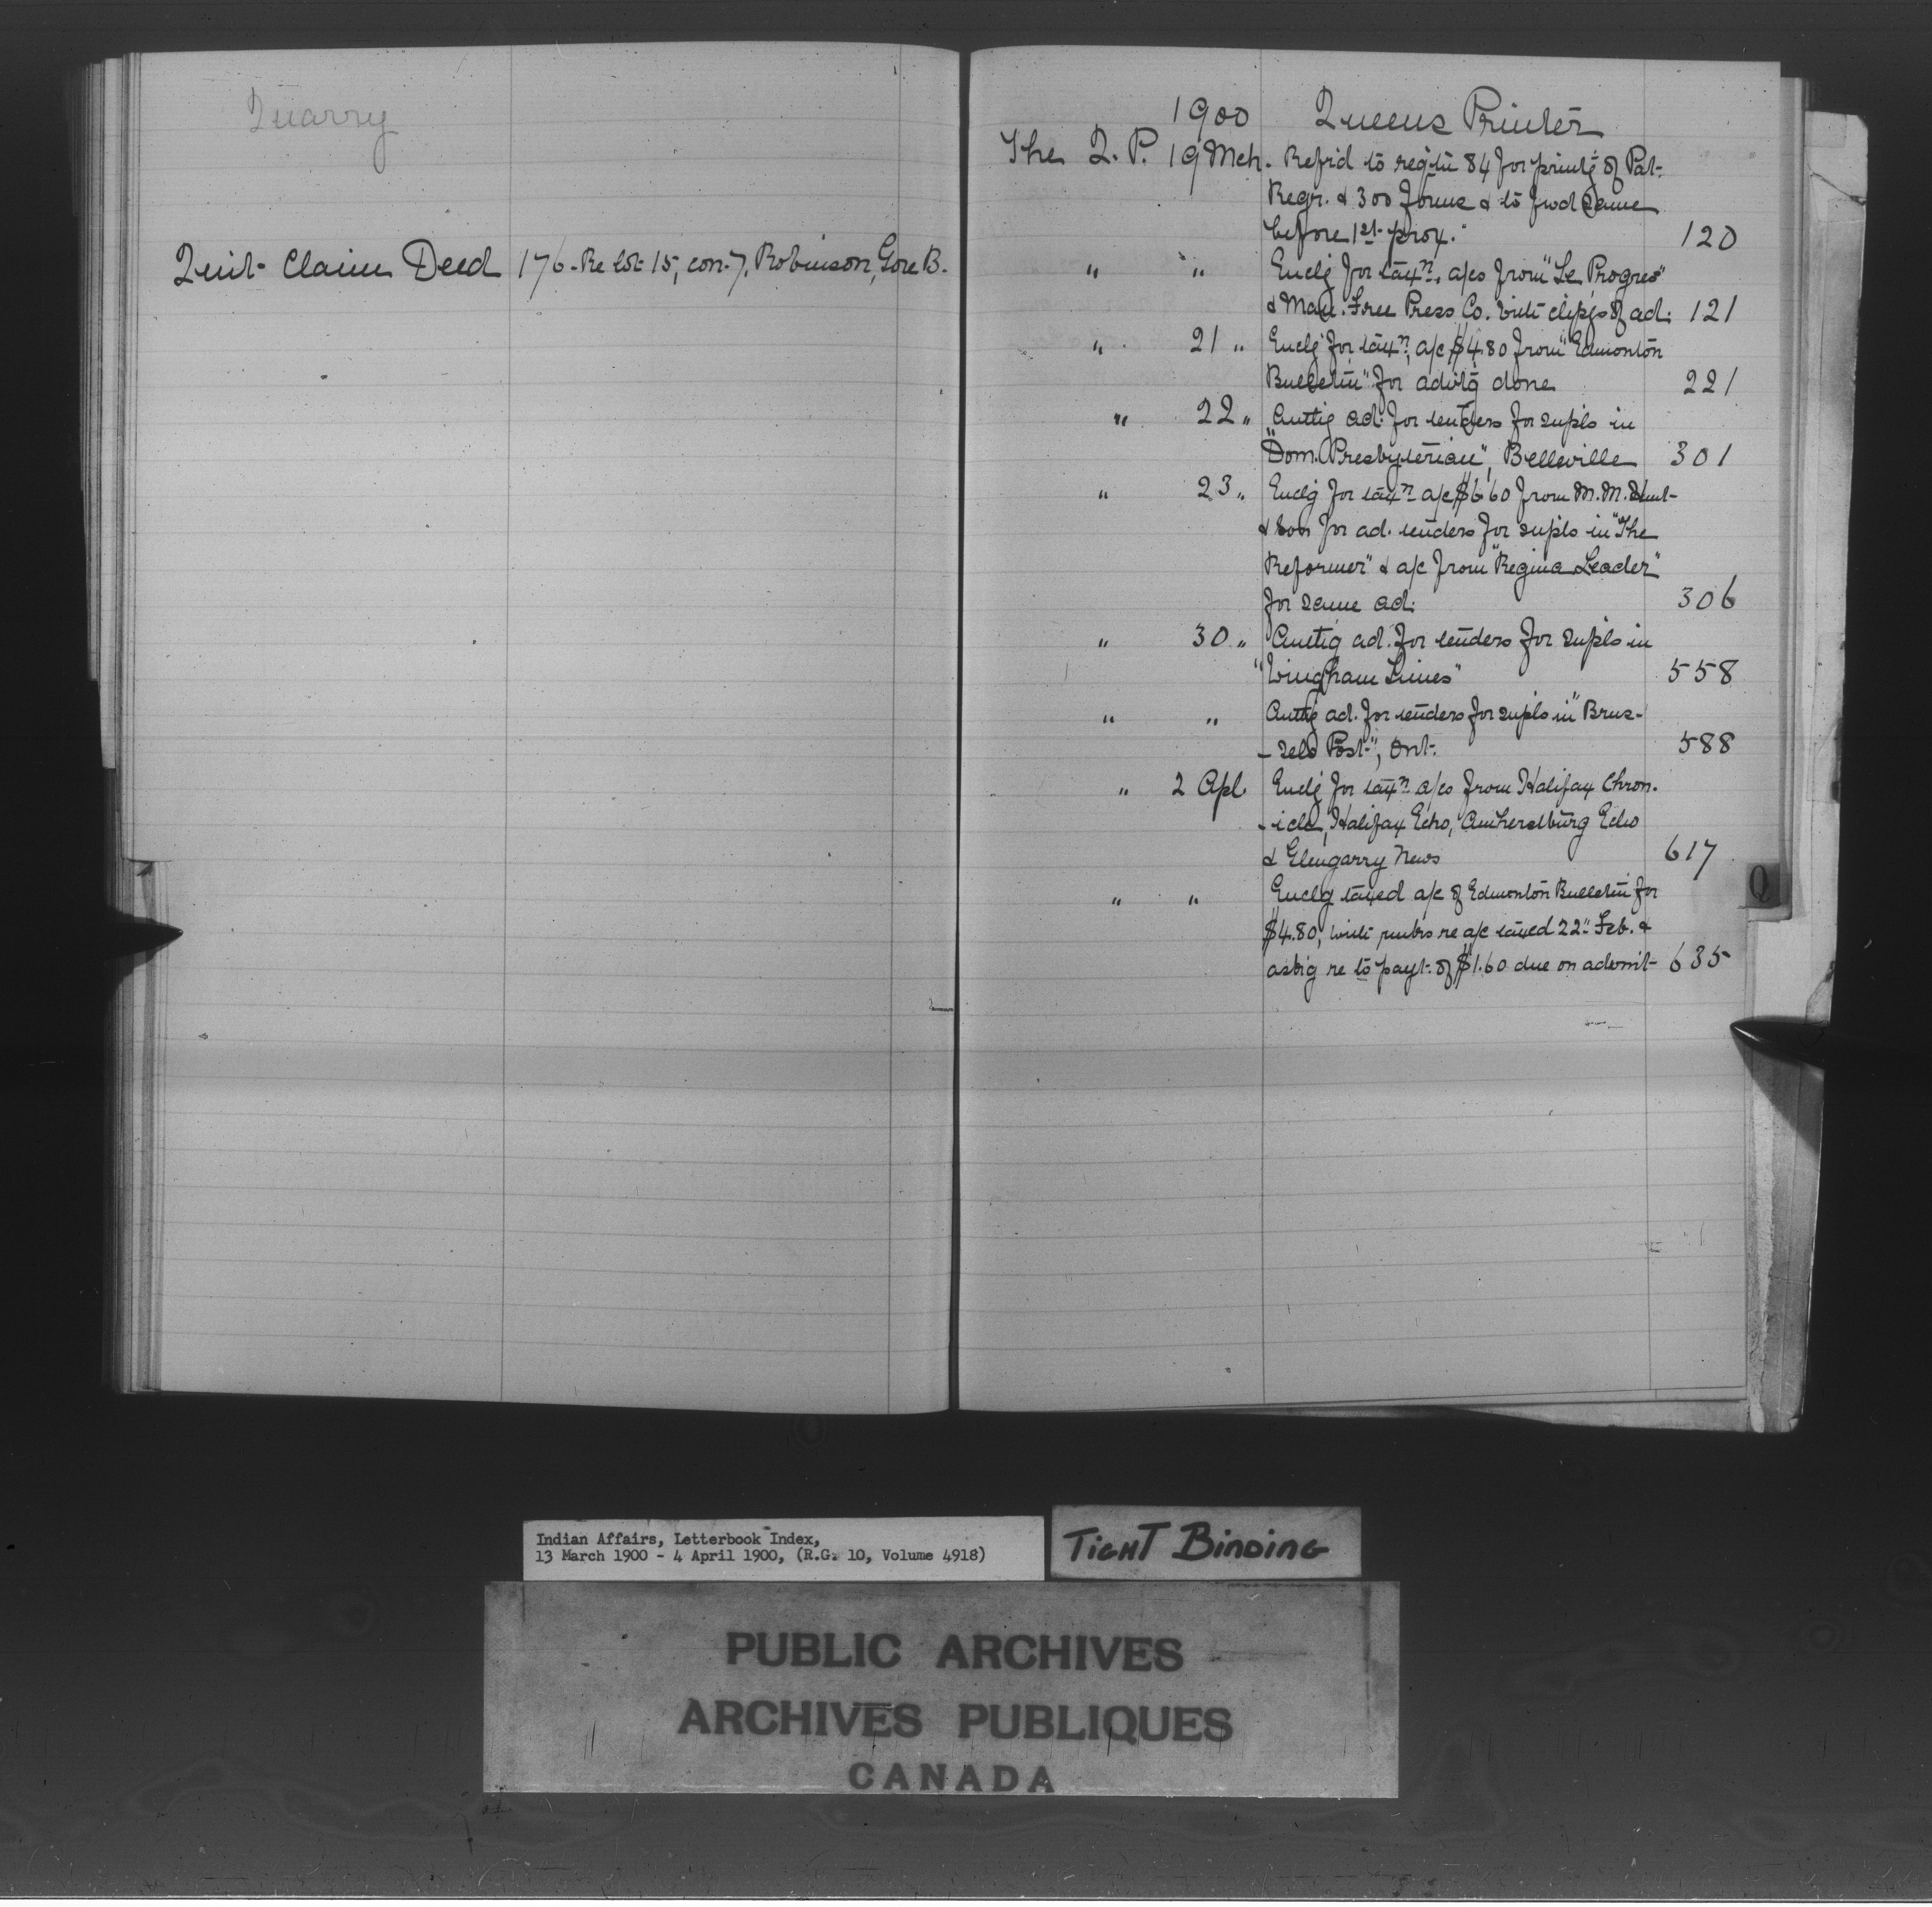 Quarry
Quit Claim Deed 176 - Re lot 15, con. 7, Robinson, Gore B.
1900 Queens Printer
The Q. P. 19 Mch. Refrd to reqtn 84 for printg of Pat.
Regr. & 300 forms & to fwd same
before 1st prox. 120
" " Enclg for taxn. a/cs from "Le Progres"
& Man. Free Press Co. with clipgs of ad. 121
" 21 " Enclg for taxn. a/c $4.80 from "Edmonton
Bulletin" for advtg done 221
" 22 " Authg ad. for tenders for supls in
"Dom. Presbyterian", Belleville 301
" 23 " Enclg for taxn a/c $6.60 from M. M.
& Son for ad. tenders for supls in "The
Reformer" & a/c from "Regina Leader"
for same ad. 306
" 30 " Authg ad. for tenders for supls in
"Wingham Times" 558
" " Authg ad. for tenders for supls in "Brus-
-sels Post", Ont. 588
" 2 Apl. Enclg for taxn a/cs from Halifax Chron.
-icle, Halifax Echo, Amherstburg Echo
& Glengarry News 617
" " Enclg taxed a/c of Edmonton Bulletin for
$4.80, with re a/c taxed 22" Feb. &
askg re to payt. of $1.60 due on advmt 635
Q
Indian Affairs, Letterbook Index,
13 March 1900 - 4 April 1900, (R.G. 10, Volume 4918)
TIGHT BINDING
PUBLIC ARCHIVES
ARCHIVES PUBLIQUES
CANADA